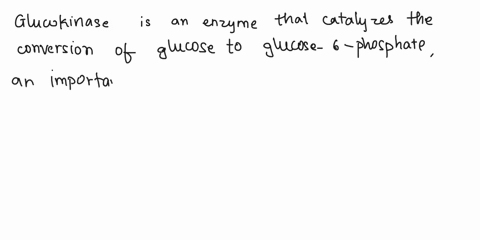 Glucokinase is an enzyme that catalyzes the
conversion of glucose to glucose-6-phosphate,
an importa